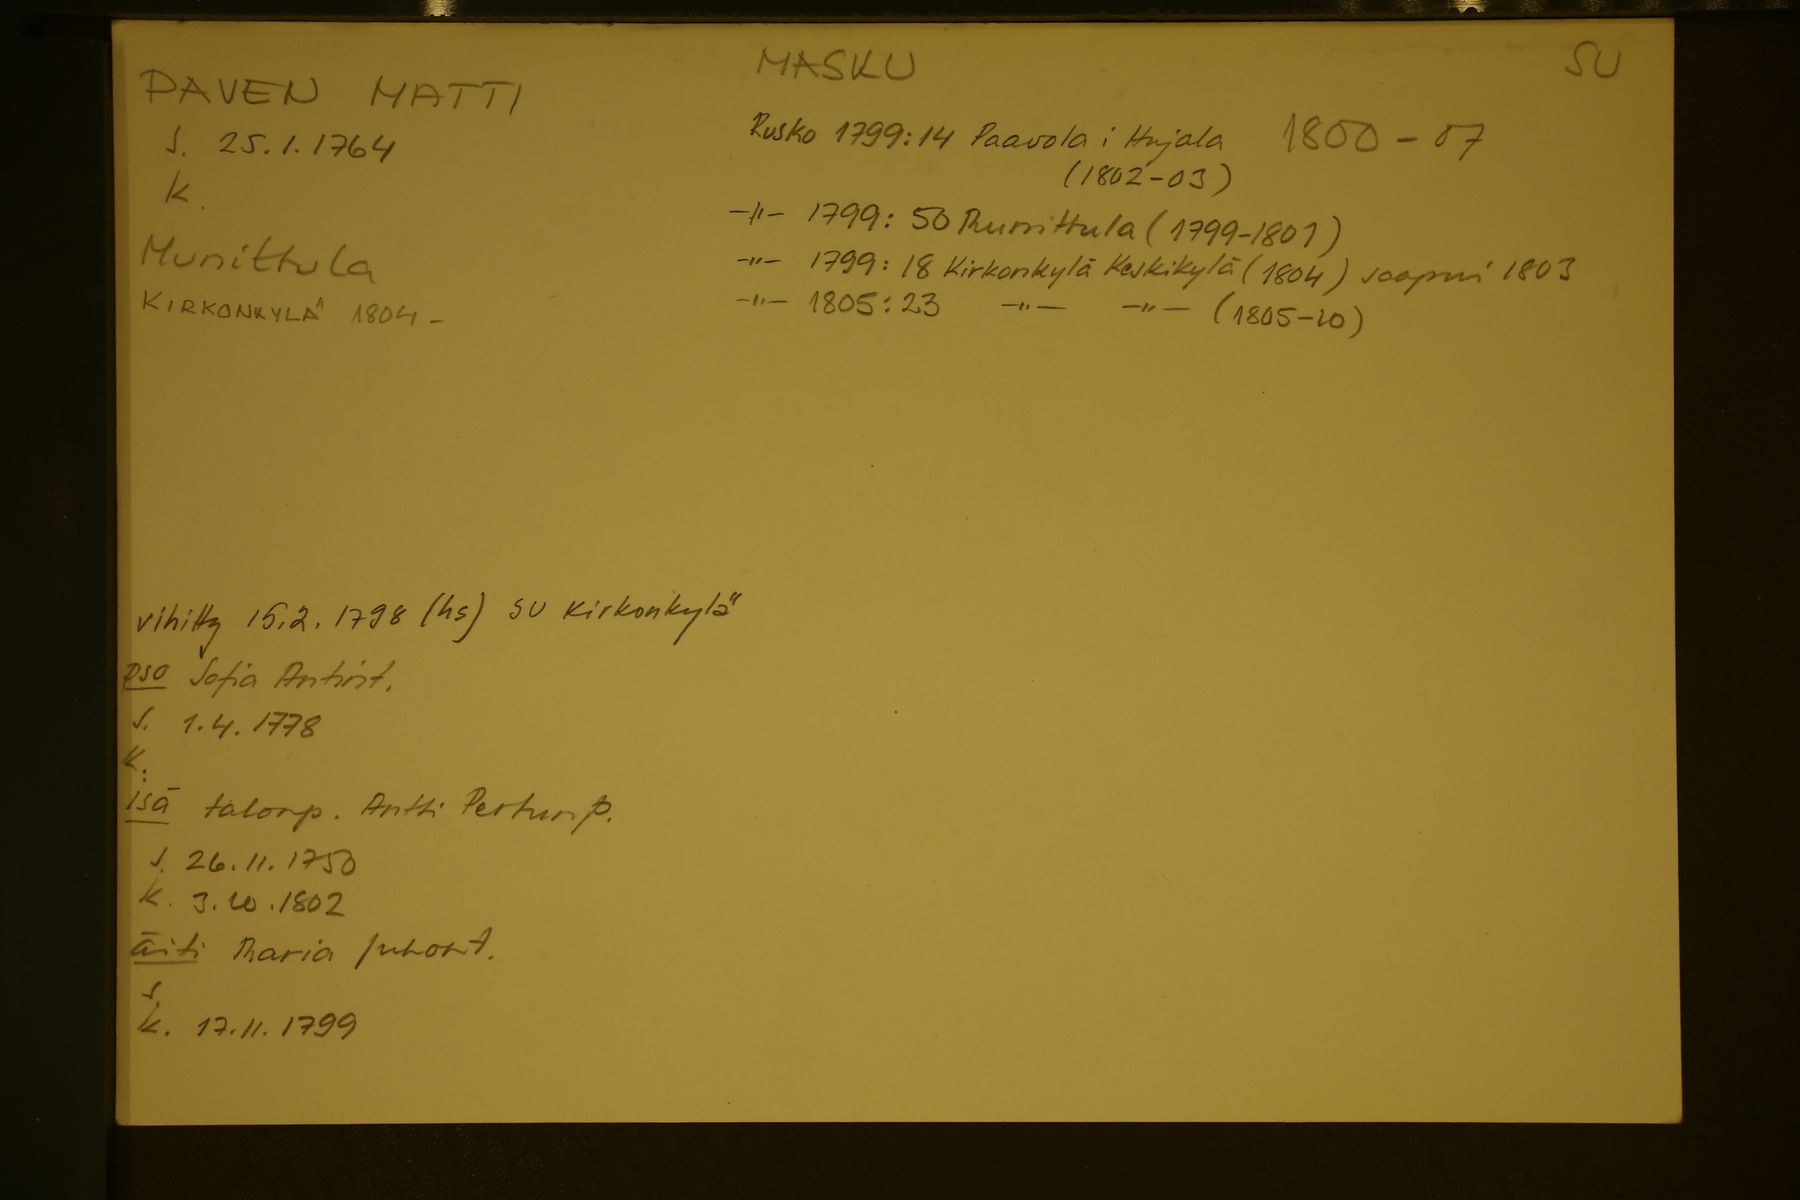 MASKU
SU
PAVEN MATTI
S. 25.1.1764
K.
Munittula
KIRKONKYLÄ 1804 -
Rusko 1799:14 Paavola i Hujala 1800 - 07
(1802-03)
-"- 1799: 50 Munittula (1799-1801)
-"- 1799: 18 Kirkonkylä Keskikylä (1804) saapui 1803
-"- 1805: 23 -"- -"- (1805-10)
vihitty 15.2. 1798 (hs) SU Kirkonkylä
pso Sofia Antint.
s. 1.4. 1778
k.
isä talonp. Antti Pertunp.
s. 26.11.1750
k. 3.10.1802
äiti Maria Juhont.
s.
k. 17.11.1799